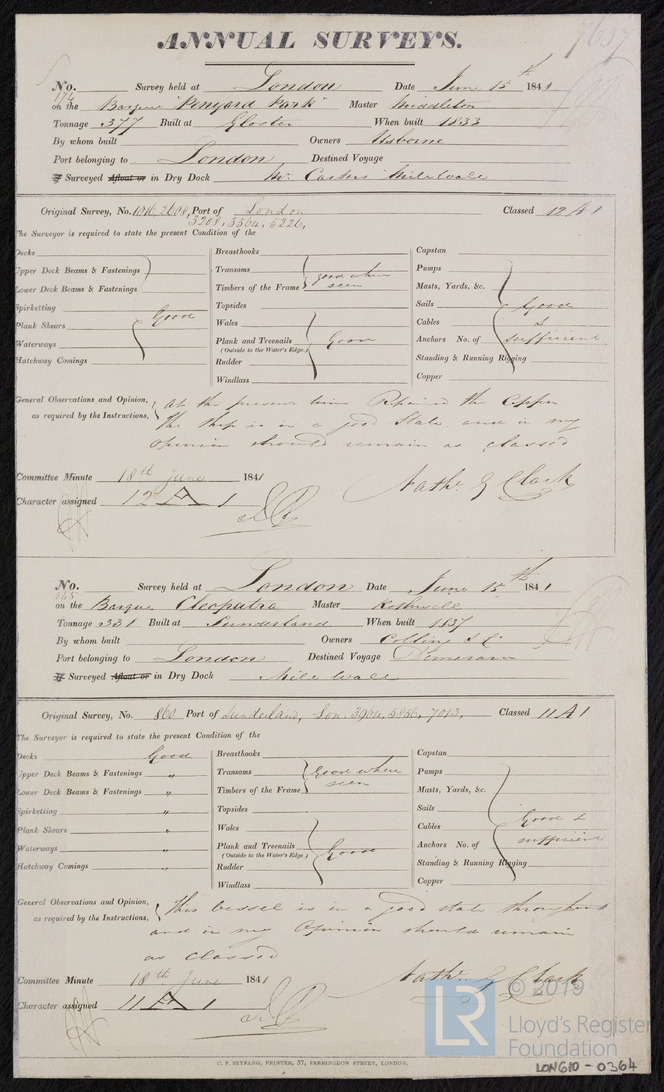 7637
ANNUAL SURVEYS.
No. 174 Survey held at London Date June 15th 1841
on the Barque "Penyard Park" Master Middleton
Tonnage 377 Built at Gloster When built 1833
By whom built Owners Usborne
Port belonging to London Destined Voyage
If Surveyed Afloat or in Dry Dock Mr. Millwall
Original Survey, No. 2608, Port of London Classed 12 A 1
3208, 3564, 5226,
The Surveyor is required to state the present Condition of the
Decks Breasthooks Capstan
Upper Deck Beams & Fastenings Transoms good where Pumps
Lower Deck Beams & Fastenings Timbers of the Frame seen Masts, Yards, &c.
Spirketting Good Topsides Sails Good
Plank Shears Wales Cables &
Waterways Plank and Treenails Good Anchors No. of sufficient
(Outside to the Water's Edge.)
Hatchway Comings Rudder Standing & Running Rigging
Windlass Copper
General Observations and Opinion, at the present time Repaired the Copper
as required by the Instructions, the ship is in a good State and in my
opinion should remain as classed
Committee Minute 18th June 1841
Character assigned 12 A 1 Nathl. G Clark
No. 545 Survey held at London Date June 15th 1841
on the Barque Cleopatra Master Rothwell
Tonnage 331 Built at Sunderland When built 1837
By whom built Owners Collins & Co
Port belonging to London Destined Voyage Demerara
If Surveyed Afloat or in Dry Dock Mill Wall
Original Survey, No. 860 Port of Sunderland, Lon. 3964, 5856, 7013, Classed 11 A 1
The Surveyor is required to state the present Condition of the
Decks Good Breasthooks Capstan
Upper Deck Beams & Fastenings " Transoms Good where Pumps
Lower Deck Beams & Fastenings " Timbers of the Frame seen Masts, Yards, &c.
Spirketting " Topsides Sails
Plank Shears " Wales Cables Good &
Waterways " Plank and Treenails Good Anchors No. of sufficient
(Outside to the Water's Edge.)
Hatchway Comings " Rudder Standing & Running Rigging
Windlass Copper
General Observations and Opinion, This vessel is in a good state throughout
as required by the Instructions, and in my Opinion should remain
as classed
Committee Minute 18th June 1841
Character assigned 11 A 1 Nathl. G Clark
C. F. SEYFANG, PRINTER, 57, FARRINGDON STREET, LONDON.
© 2019
LR Lloyd's Register
Foundation
LON610-0364